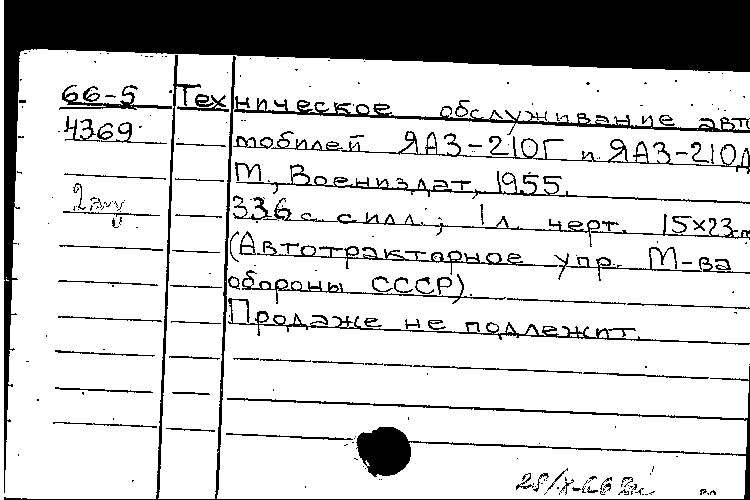 66-5 Техническое обслуживание авто
4369 мобилей ЯАЗ-210Г и ЯАЗ-210Д
М., Воениздат, 1955.
336 с. с илл.; 1 л. черт. 15×23 с
(Автотракторное упр. М-ва
обороны СССР).
Продаже не подлежит.